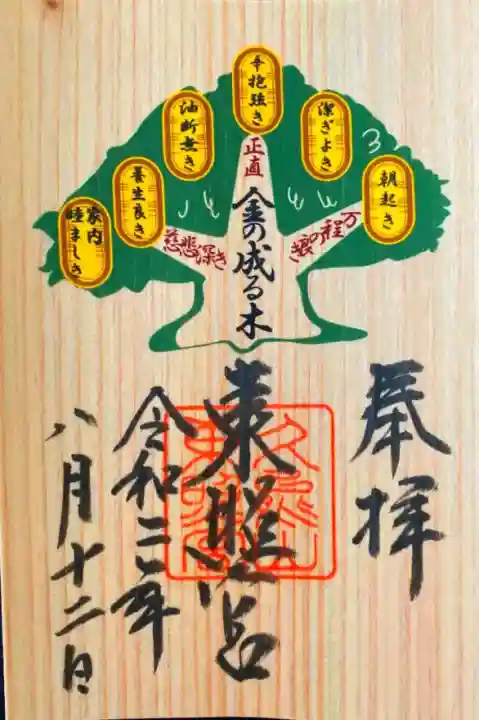 朝起き
潔ぎよき
辛抱強き
油断無き
養生良き
家内
睦ましき
正直
万程の
慈悲深き
金の成る木
奉拝
東照宮
久能山
東照宮
令和三年
八月十二日